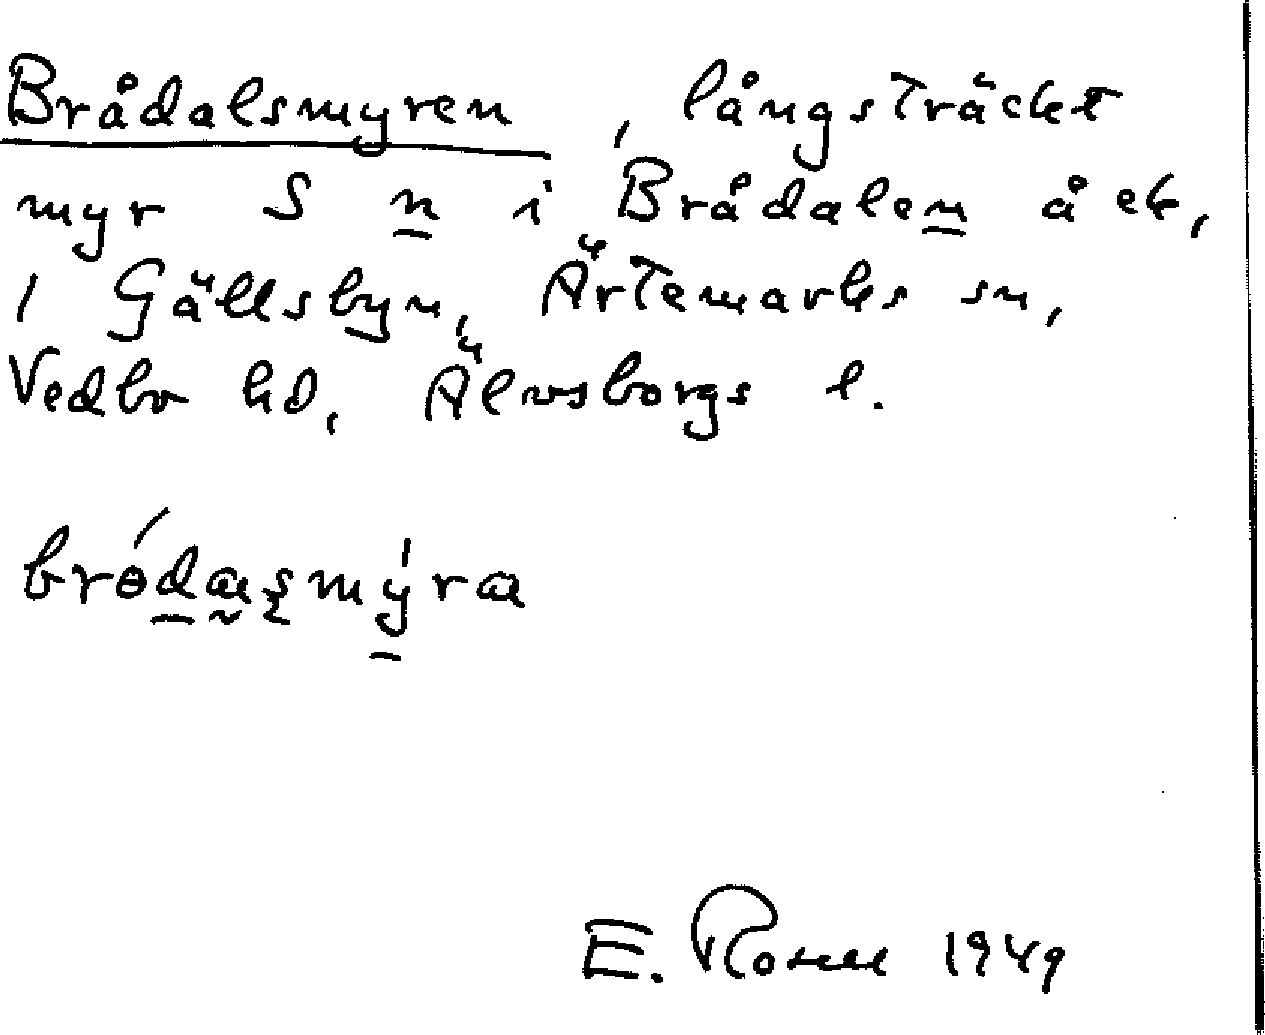 Brådalsmyren, långsträckt
myr S n i Brådalen å ek,
i Gällsbyn, Ärtemarks sn,
Vedbo hd, Älvsborgs l.
E. Rosell 1949